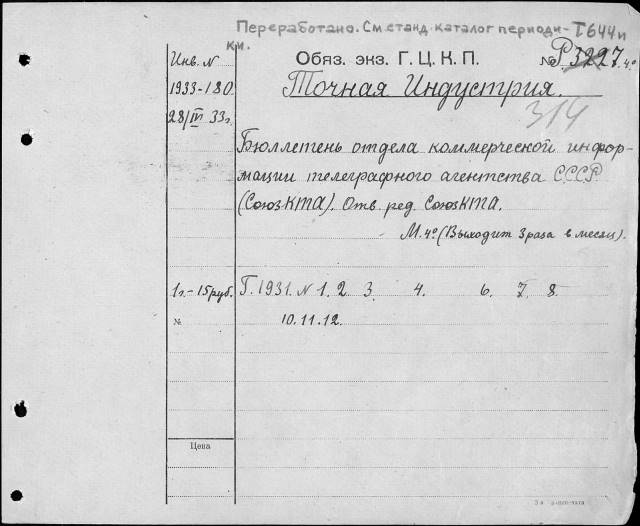 Переработано. См. станд. каталог периоди- I 644 и
ки.
Инв. N
Обяз. экз. Г. Ц. К. П.
№ Р. 3227. 4°
1933-180
Точная Индустрия.
28/IV 33г.
314
Бюллетень отдела коммерческой инфор-
мации телеграфного агентства СССР
(СоюзКТА). Отв. ред. СоюзКТА.
М. 4° (Выходит 3 раза в месяц).
1 г. - 15 руб.
Г. 1931. N 1. 2. 3. 4. 6. 7. 8.
№
10. 11. 12.
Цена